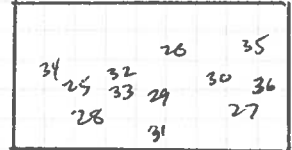 26 35
34 32 30
25 33 29 36
28 27
31